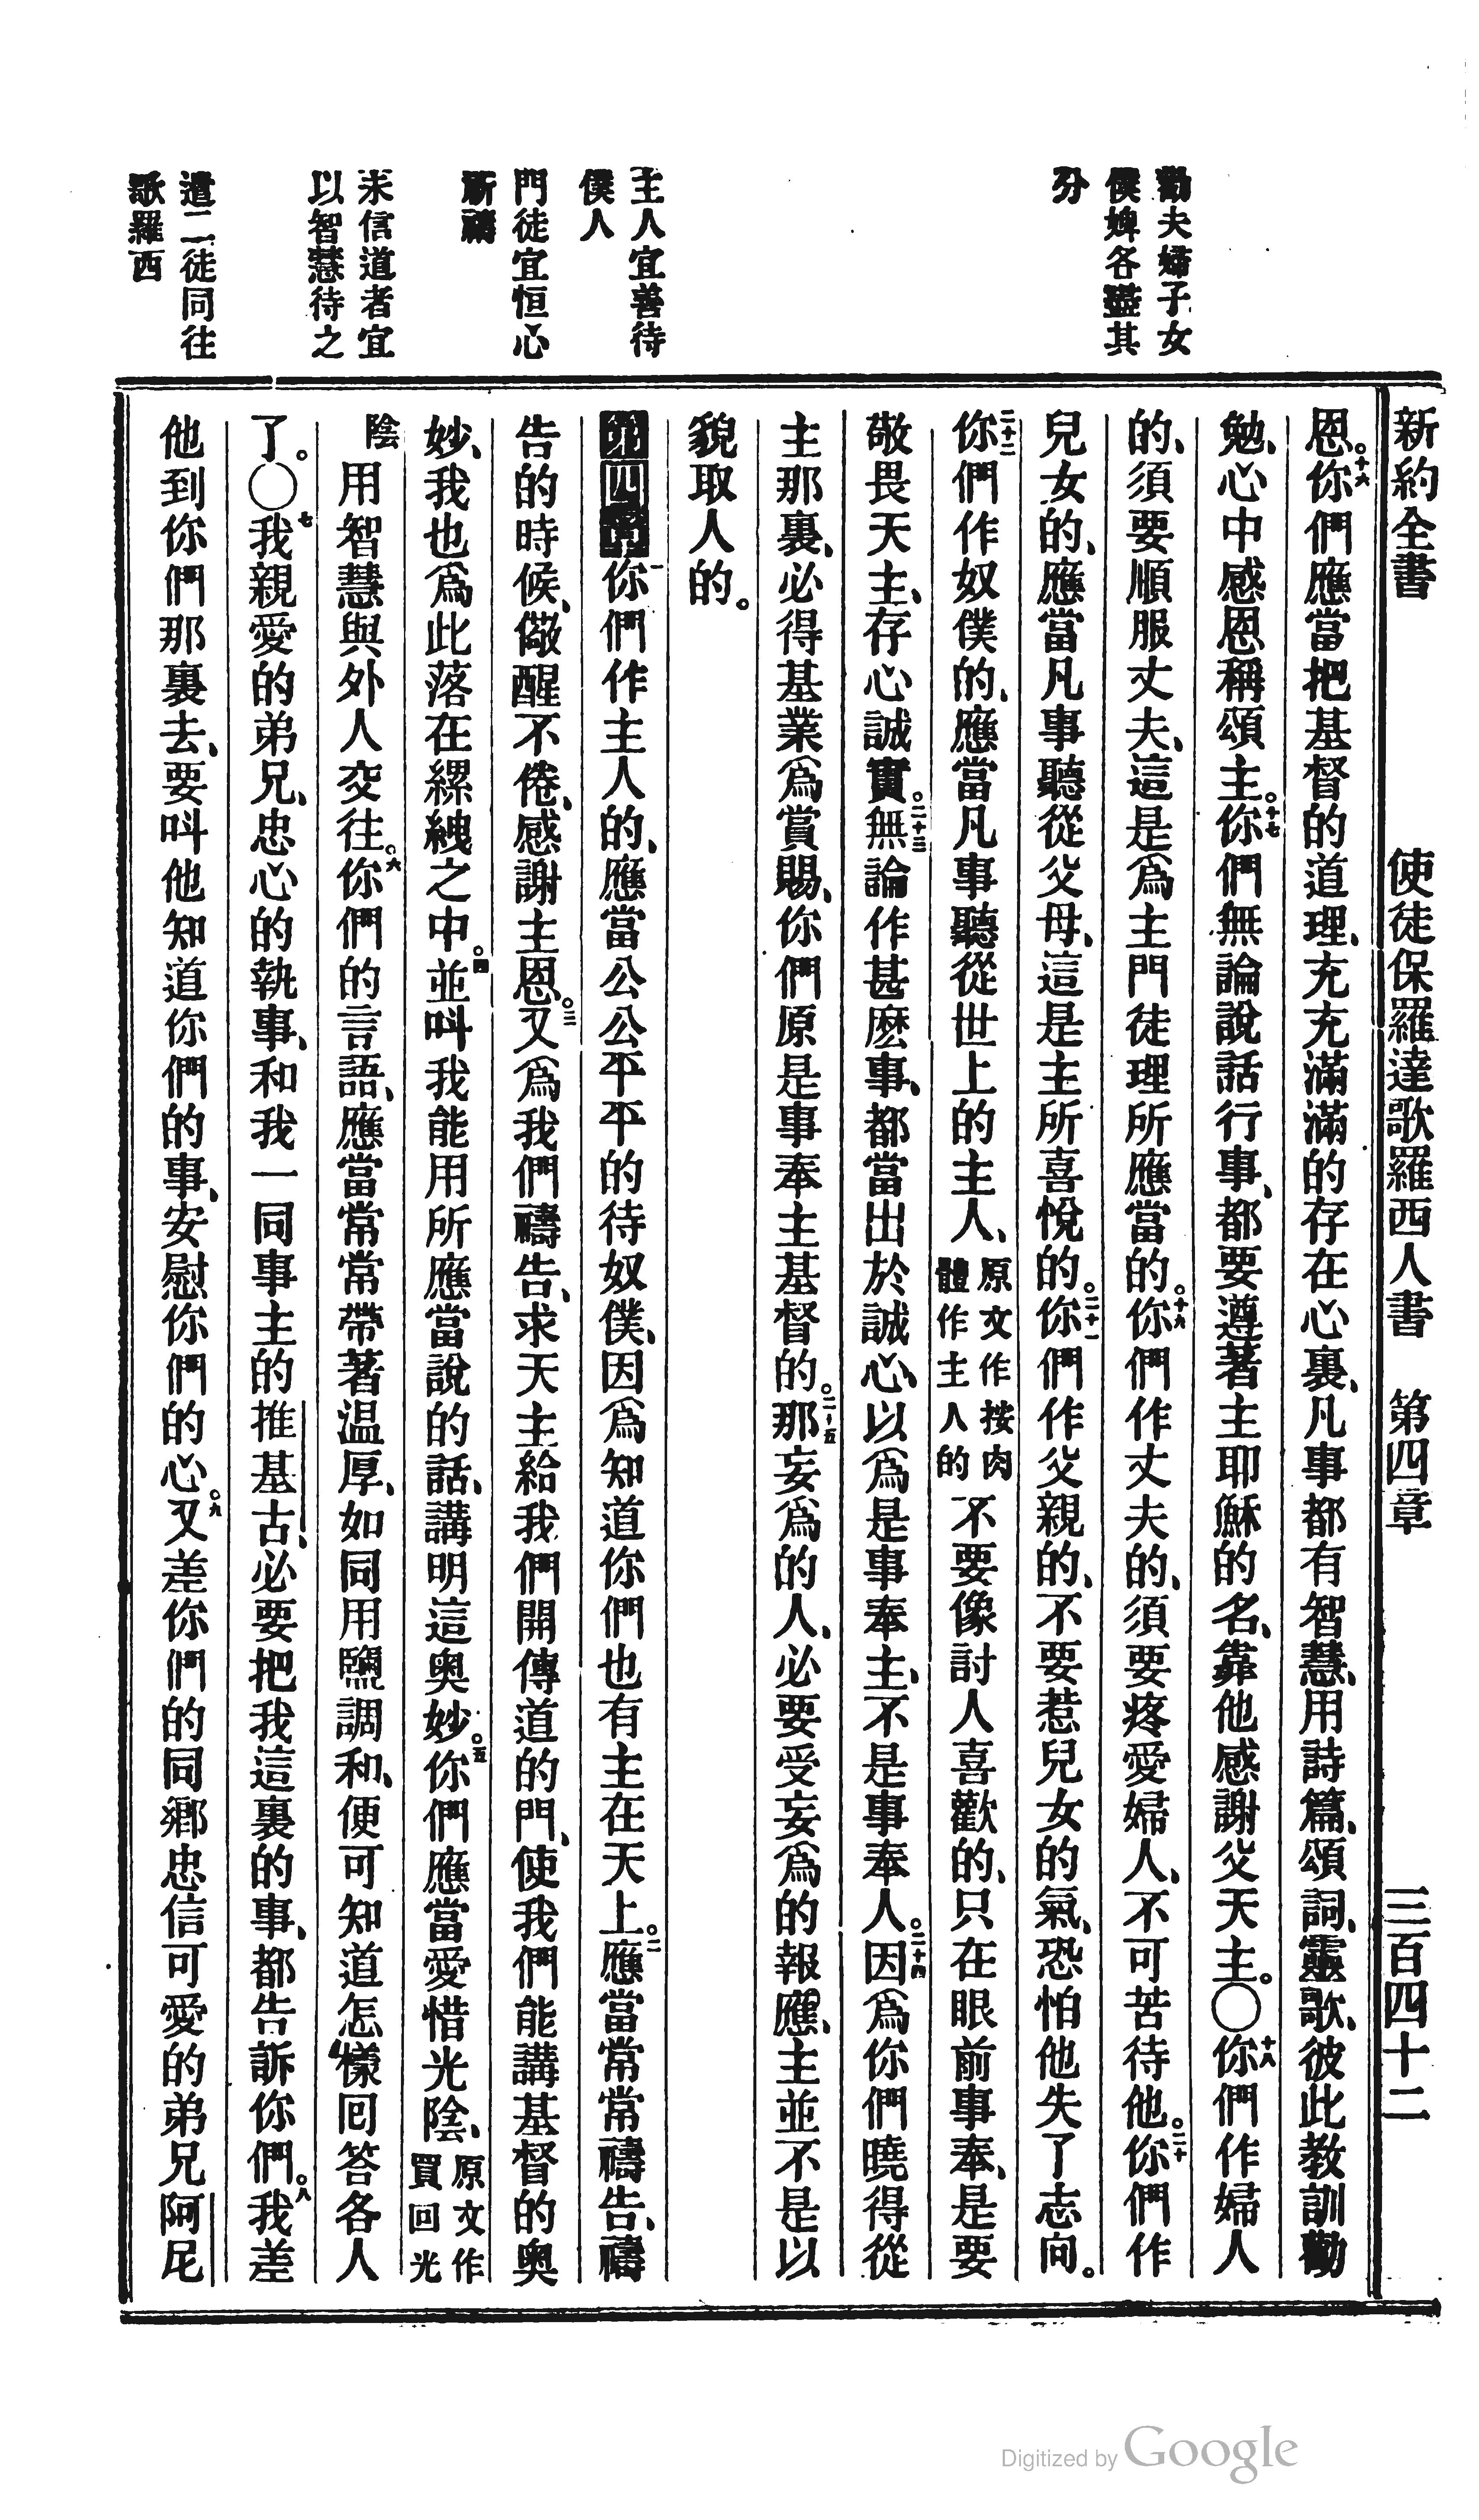 新約全書　使徒保羅達歌羅西人書　第四章　三百四十二
勸夫婦子女
僕婢各盡其
分
主人宜善待
僕人
門徒宜恒心
祈禱
未信道者宜
以智慧待之
遣二徒同往
歌羅西
恩。十六你們應當把基督的道理、充充滿滿的存在心裏、凡事都有智慧、用詩篇、頌詞、靈歌、彼此教訓勸
勉、心中感恩稱頌主。十七你們無論說話行事、都要遵著主耶穌的名、靠他感謝父天主。〇十八你們作婦人
的、須要順服丈夫、這是爲主門徒理所應當的。十九你們作丈夫的、須要疼愛婦人、不可苦待他。二十你們作
兒女的、應當凡事聽從父母、這是主所喜悅的。二十一你們作父親的、不要惹兒女的氣、恐怕他失了志向。
二十二你們作奴僕的、應當凡事聽從世上的主人、原文作按肉體作主人的不要像討人喜歡的、只在眼前事奉、是要
敬畏天主、存心誠實。二十三無論作甚麽事、都當出於誠心、以爲是事奉主、不是事奉人。二十四因爲你們曉得從
主那裏、必得基業爲賞賜、你們原是事奉主基督的。二十五那妄爲的人、必要受妄爲的報應、主並不是以
貌取人的。
第四章一你們作主人的、應當公公平平的待奴僕、因爲知道你們也有主在天上。二應當常常禱告、禱
告的時候、儆醒不倦、感謝主恩。三又爲我們禱告、求天主給我們開傳道的門、使我們能講基督的奧
妙、我也爲此落在縲絏之中。四並呌我能用所應當說的話、講明這奧妙。五你們應當愛惜光陰、原文作買回光
陰用智慧與外人交往。六你們的言語、應當常常帶著温厚、如同用鹽調和、便可知道怎樣回答各人
了。〇七我親愛的弟兄、忠心的執事、和我一同事主的推基古、必要把我這裏的事、都告訴你們。八我差
他到你們那裏去、要呌他知道你們的事、安慰你們的心。九又差你們的同鄉忠信可愛的弟兄阿尼
Digitized by Google